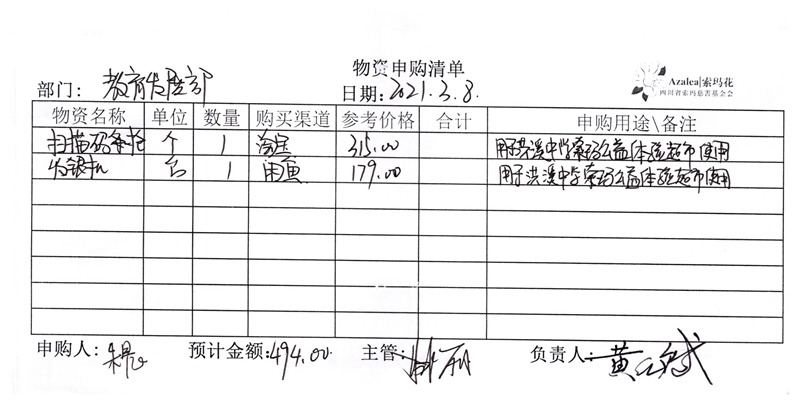 物资申购清单
Azalea|索玛花
四川省索玛慈善基金会
部门：教育发展部
日期：2021.3.8.
物资名称 单位 数量 购买渠道 参考价格 合计 申购用途\备注
扫描码条枪 个 1 淘宝 315.00 用于洪溪中学索玛公益体验超市使用
收银机 台 1 闲鱼 179.00 用于洪溪中学索玛公益体验超市使用
申购人： 预计金额：494.00. 主管： 负责人：黄